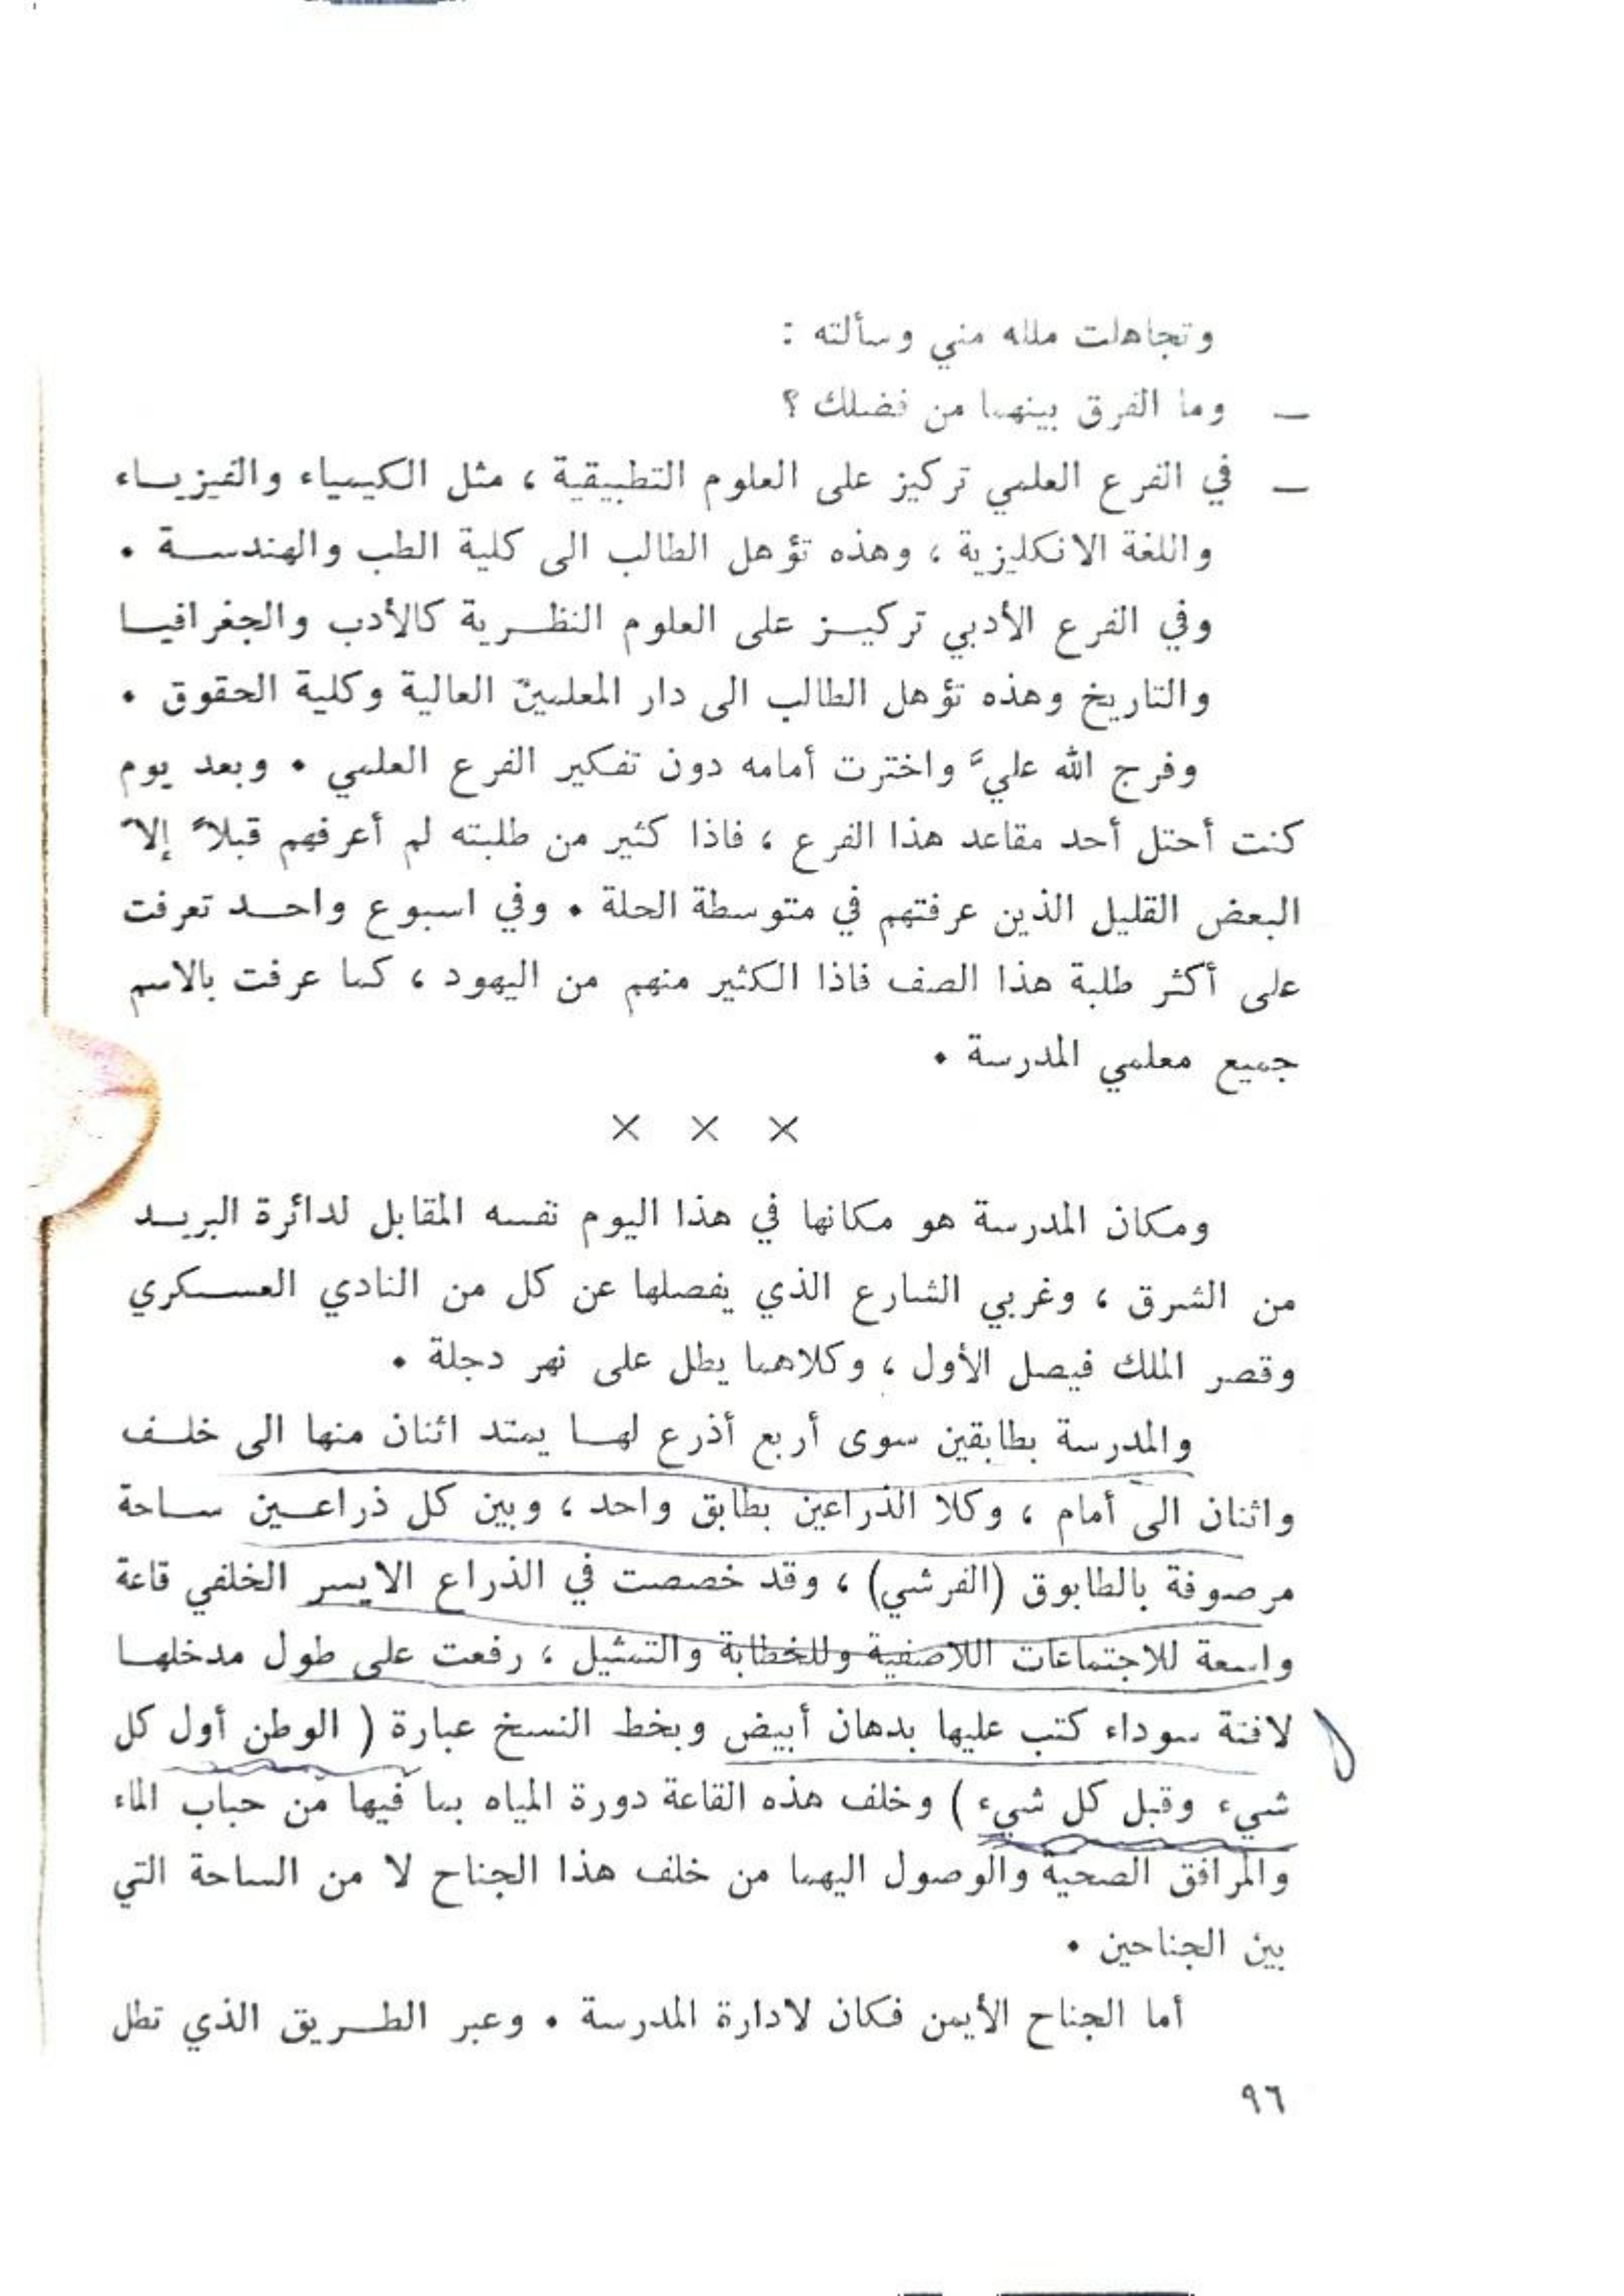 وتجاهلت ملله مني وسألته :
— وما الفرق بينهما من فضلك ؟
— في الفرع العلمي تركيز على العلوم التطبيقية ، مثل الكيمياء والفيزياء
واللغة الانكليزية ، وهذه تؤهل الطالب الى كلية الطب والهندسة .
وفي الفرع الأدبي تركيز على العلوم النظرية كالأدب والجغرافيا
والتاريخ وهذه تؤهل الطالب الى دار المعلمين العالية وكلية الحقوق .
وفرج الله عليّ واخترت أمامه دون تفكير الفرع العلمي . وبعد يوم
كنت أحتل أحد مقاعد هذا الفرع ، فاذا كثير من طلبته لم أعرفهم قبلاً إلاّ
البعض القليل الذين عرفتهم في متوسطة الحلة . وفي اسبوع واحد تعرفت
على أكثر طلبة هذا الصف فاذا الكثير منهم من اليهود ، كما عرفت بالاسم
جميع معلمي المدرسة .
× × ×
ومكان المدرسة هو مكانها في هذا اليوم نفسه المقابل لدائرة البريد
من الشرق ، وغربي الشارع الذي يفصلها عن كل من النادي العسكري
وقصر الملك فيصل الأول ، وكلاهما يطل على نهر دجلة .
والمدرسة بطابقين سوى أربع أذرع لها يمتد اثنان منها الى خلف
واثنان الى أمام ، وكلا الذراعين بطابق واحد ، وبين كل ذراعين ساحة
مرصوفة بالطابوق (الفرشي) ، وقد خصصت في الذراع الايسر الخلفي قاعة
واسعة للاجتماعات اللاصفية وللخطابة والتمثيل ، رفعت على طول مدخلها
لافتة سوداء كتب عليها بدهان أبيض وبخط النسخ عبارة ( الوطن أول كل
شيء وقبل كل شيء ) وخلف هذه القاعة دورة المياه بما فيها من حباب الماء
والمرافق الصحية والوصول اليهما من خلف هذا الجناح لا من الساحة التي
بين الجناحين .
أما الجناح الأيمن فكان لادارة المدرسة . وعبر الطريق الذي تطل
٩٦